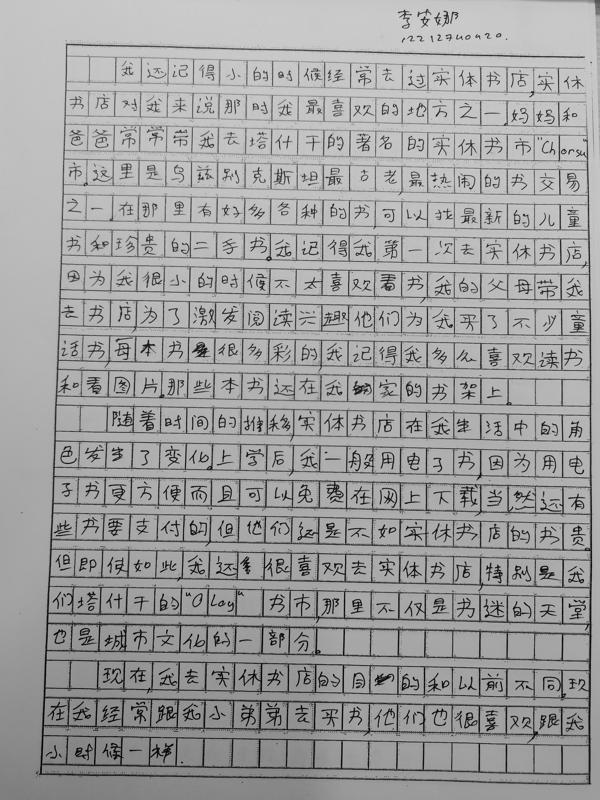 李安娜
12212740420.
我还记得小的时候经常去过实体书店,实休
书店对我来说那时我最喜欢的地方之一.妈妈和
爸爸常常带我去塔什干的著名的实休书市"Chorsu"
市.这里是乌兹别克斯坦最古老,最热闹的书交易
之一.在那里有好多各种的书,可以找最新的儿童
书和珍贵的二手书.我记得我第一次去实休书店,
因为我很小的时候不太喜欢看书,我的父母带我
去书店,为了激发阅读兴趣他们为我买了不少童
话书,每本书很多彩的,我记得我多么喜欢读书
和看图片.那些本书还在我家的书架上.
随着时间的推移,实体书店在我生活中的角
色发生了变化.上学后,我一般用电子书,因为用电
子书更方便而且可以免费在网上下载,当然还有
些书要支付的,但他们还是不如实休书店的书贵.
但即使如此,我还很喜欢去实体书店,特别是我
们塔什干的"Olay"书市,那里不仅是书迷的天堂,
也是城市文化的一部分.
现在,我去实休书店的目的和以前不同.现
在我经常跟我小弟弟去买书,他们也很喜欢,跟我
小时候一样.